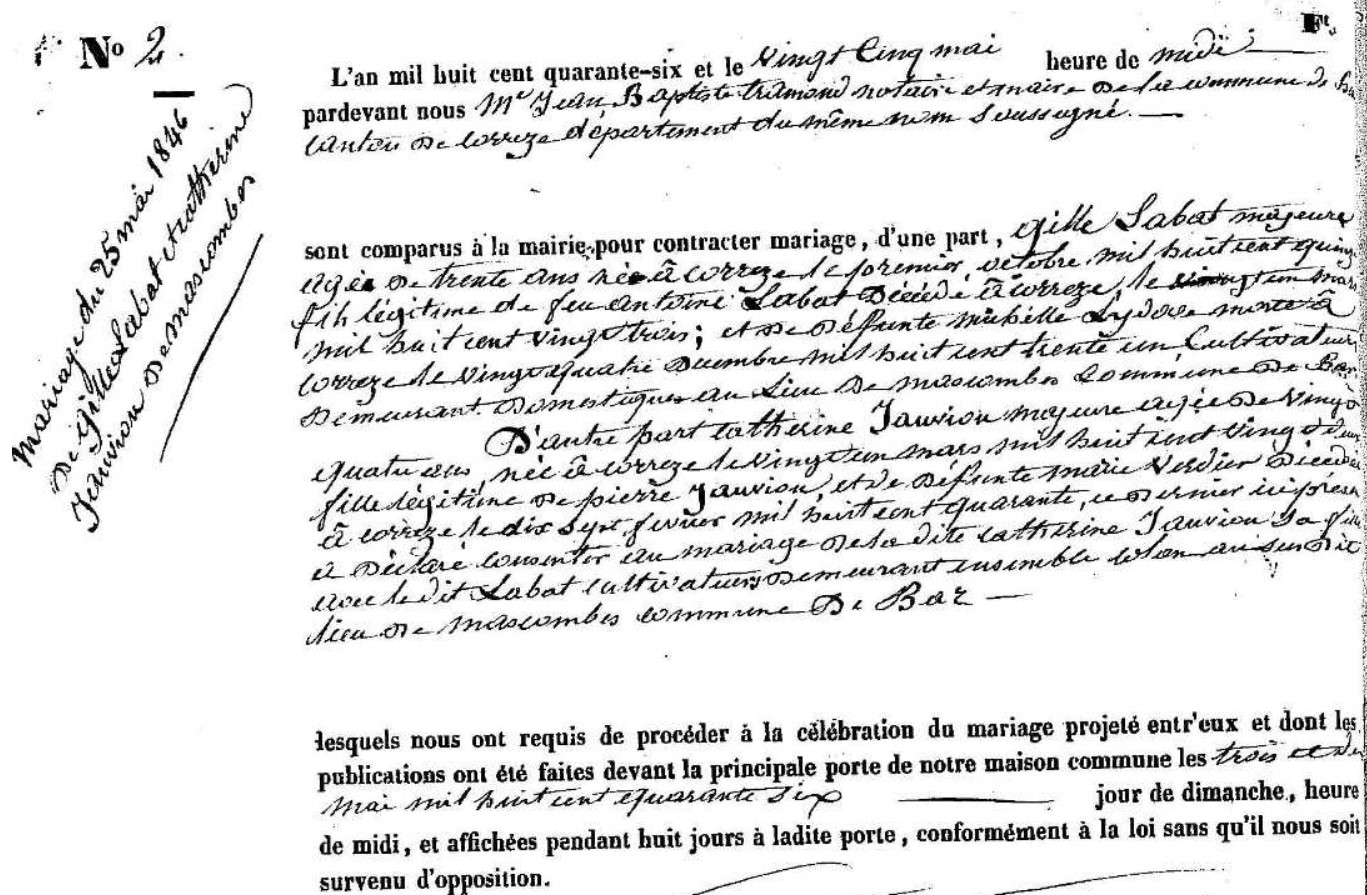 No 2.
Mariage du 25 mai 1846
De gille Labat et catherine
Jauvion De mascombes
L'an mil huit cent quarante-six et le Vingt Cinq mai heure de midi
pardevant nous Me Jean Baptiste tramond notaire et maire De la commune de Ba
Canton De Correze département du même nom Soussigné.
sont comparus à la mairie pour contracter mariage, d'une part, gille Labat majeure
agée De trente ans née à correze le premier, octobre mil huit cent quinze
fils légitime de feu antoine Labat Décédé à correze, le vingt un mars
mil huit cent vingt trois; et De Défunte michelle morte à
correze le Vingt quatre Decembre mil huit cent trente un, Cultivateur
Demeurant Domestique au Lieu De mascombes Commune De Bar
D'autre part catherine Jauvion majeure agée De vingt
quatre ans, née à correze le vingt un mars mil huit cent vingt deux
fille légitime De pierre Jauvion, et De Défunte marie Verdier Décédée
à correze le dix Sept fevrier mil huit cent quarante, ce Dernier ici présen
a Déclaré consentir au mariage De la Dite catherine Jauvion Sa fille
avec le Dit Labat cultivateurs Demeurant ensemble colon au susdit
lieu De mascombes commune De Bar
lesquels nous ont requis de procéder à la célébration du mariage projeté entr'eux et dont les
publications ont été faites devant la principale porte de notre maison commune les trois et dix
mai mil huit cent quarante Six jour de dimanche, heure
de midi, et affichées pendant huit jours à ladite porte, conformément à la loi sans qu'il nous soit
survenu d'opposition.